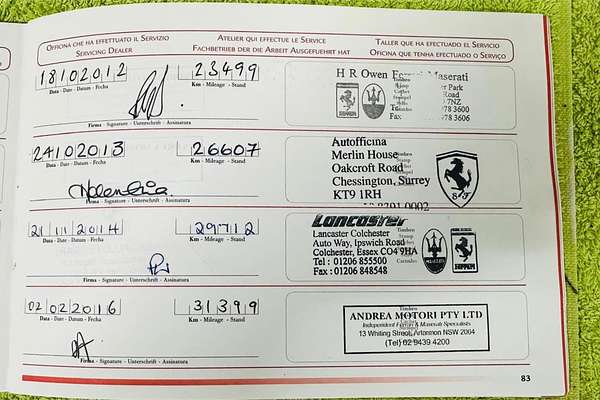 OFFICINA CHE HA EFFETTUATO IL SERVIZIO
SERVICING DEALER
ATELIER QUI EFFECTUE LE SERVICE
FACHBETRIEB DER DIE ARBEIT AUSGEFUEHRT HAT
TALLER QUE HA EFECTUADO EL SERVICIO
OFICINA QUE TENHA EFETUADO O SERVIÇO
18102012
Data - Date - Datum - Fecha
23499
Km - Mileage - Stand
Firma - Signature - Unterschrift - Assinatura
H R Owen Ferrari Maserati
Park
Road
7NZ
Tel 3600
Fax 3606
24102013
Data - Date - Datum - Fecha
26607
Km - Mileage - Stand
Firma - Signature - Unterschrift - Assinatura
Autofficina
Merlin House
Oakcroft Road
Chessington, Surrey
KT9 1RH
8391 0002
SF
21 11 2014
Data - Date - Datum - Fecha
29712
Km - Mileage - Stand
Firma - Signature - Unterschrift - Assinatura
Lancaster
Lancaster Colchester
Auto Way, Ipswich Road
Colchester, Essex CO4 9HA
Tel : 01206 855500
Fax : 01206 848548
02022016
Data - Date - Datum - Fecha
31399
Km - Mileage - Stand
Firma - Signature - Unterschrift - Assinatura
ANDREA MOTORI PTY LTD
Independent Ferrari & Maserati Specialists
13 Whiting Street, Artarmon NSW 2064
(Tel) 02 9439 4200
83